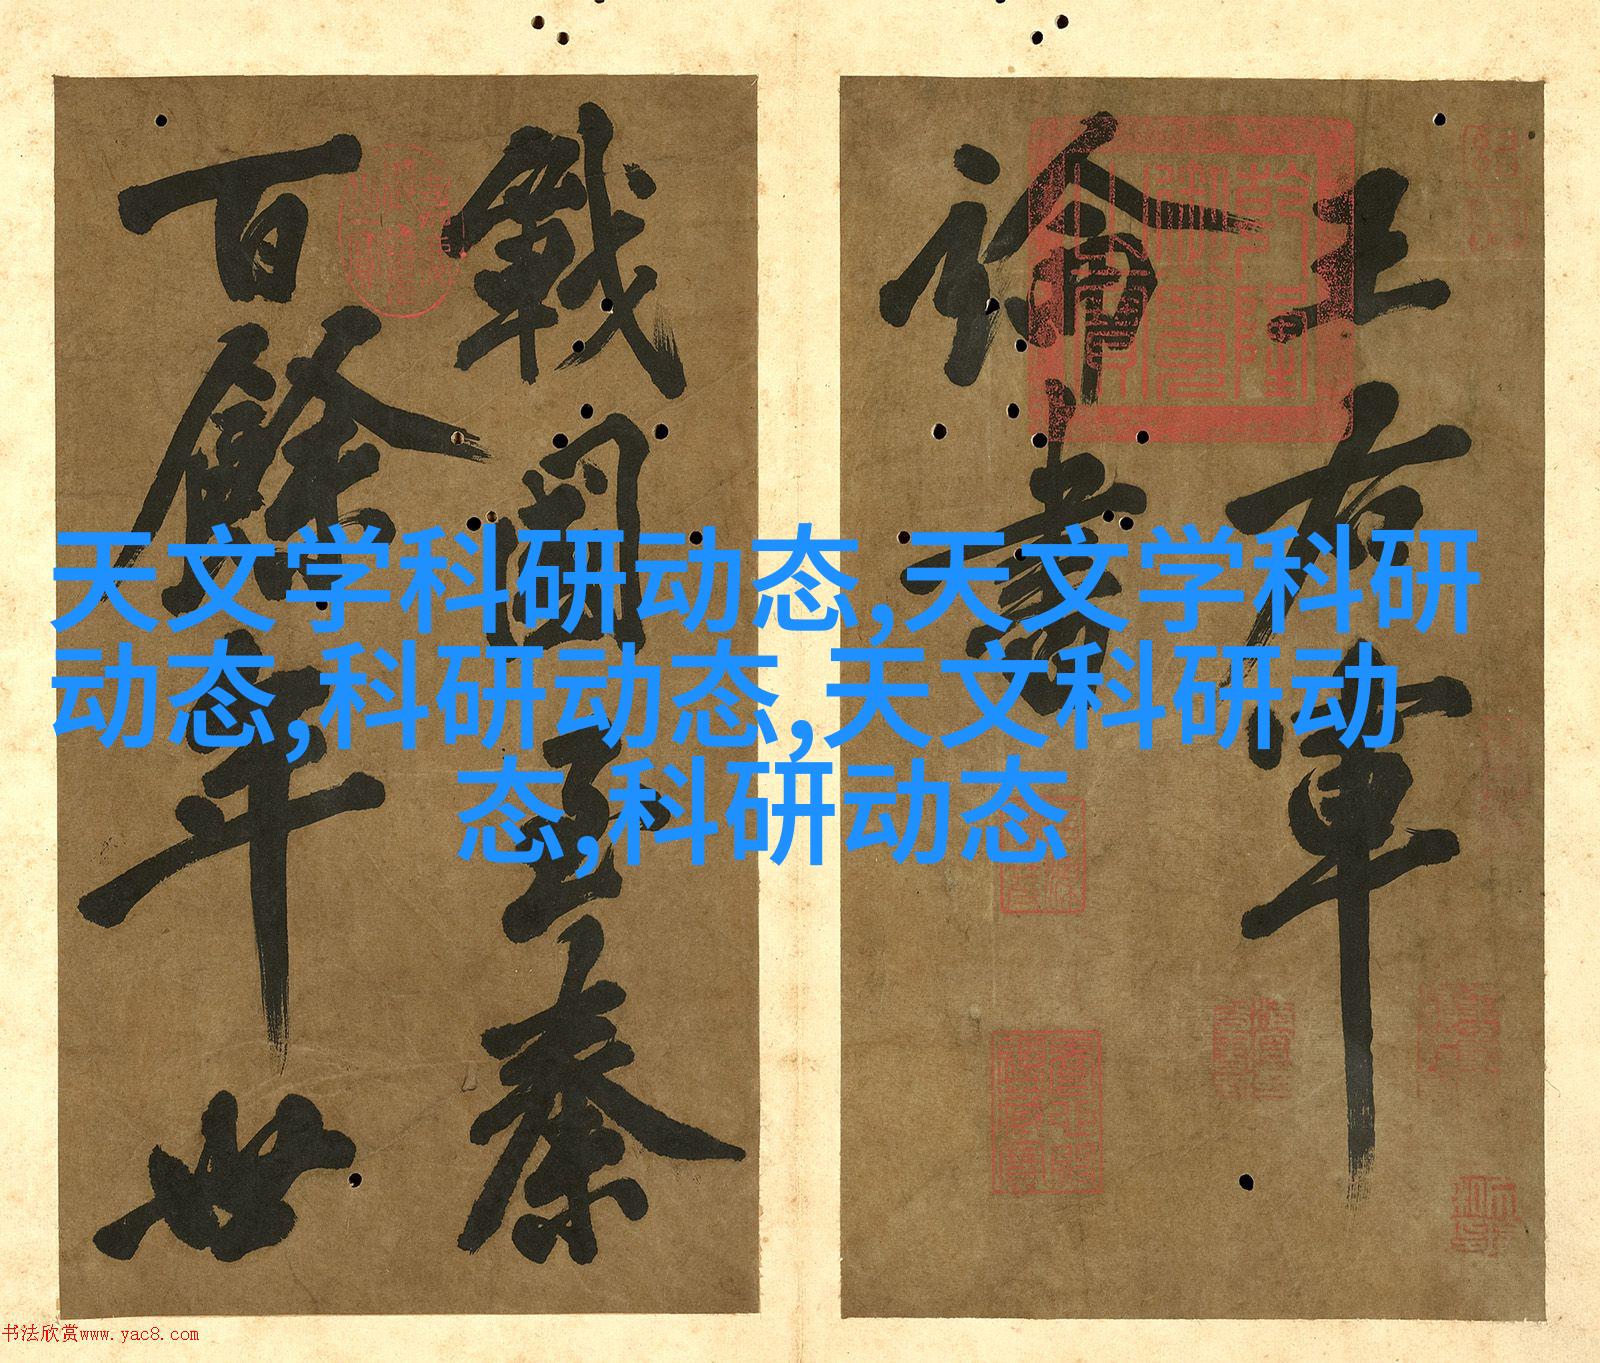 王右軍
論書
戰國至秦
百餘年世
天文学科研动态,天文学科研
动态,科研动态,天文科研动
态,科研动态
乾隆御覽之寶
书法欣赏www.yac8.com